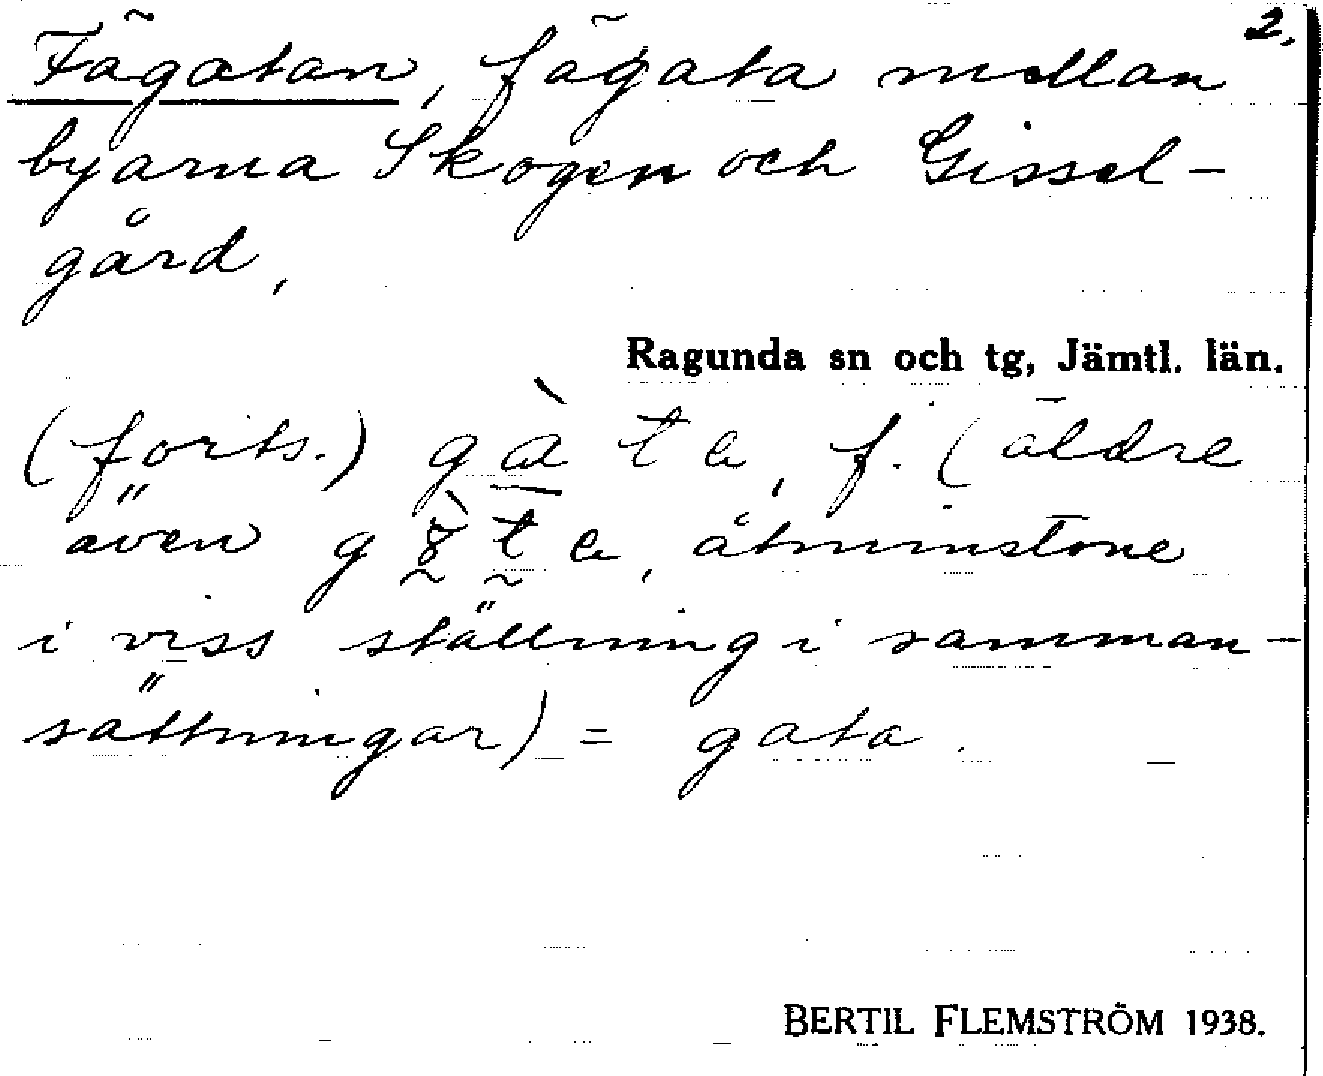 2.
Fägatan, fägata mellan
byarna Skogen och Gissel-
gård,
Ragunda sn och tg, Jämtl. län.
(forts.) f. (äldre
även åtminstone
i viss ställning i samman-
sättningar) = gata.
BERTIL FLEMSTRÖM 1938.